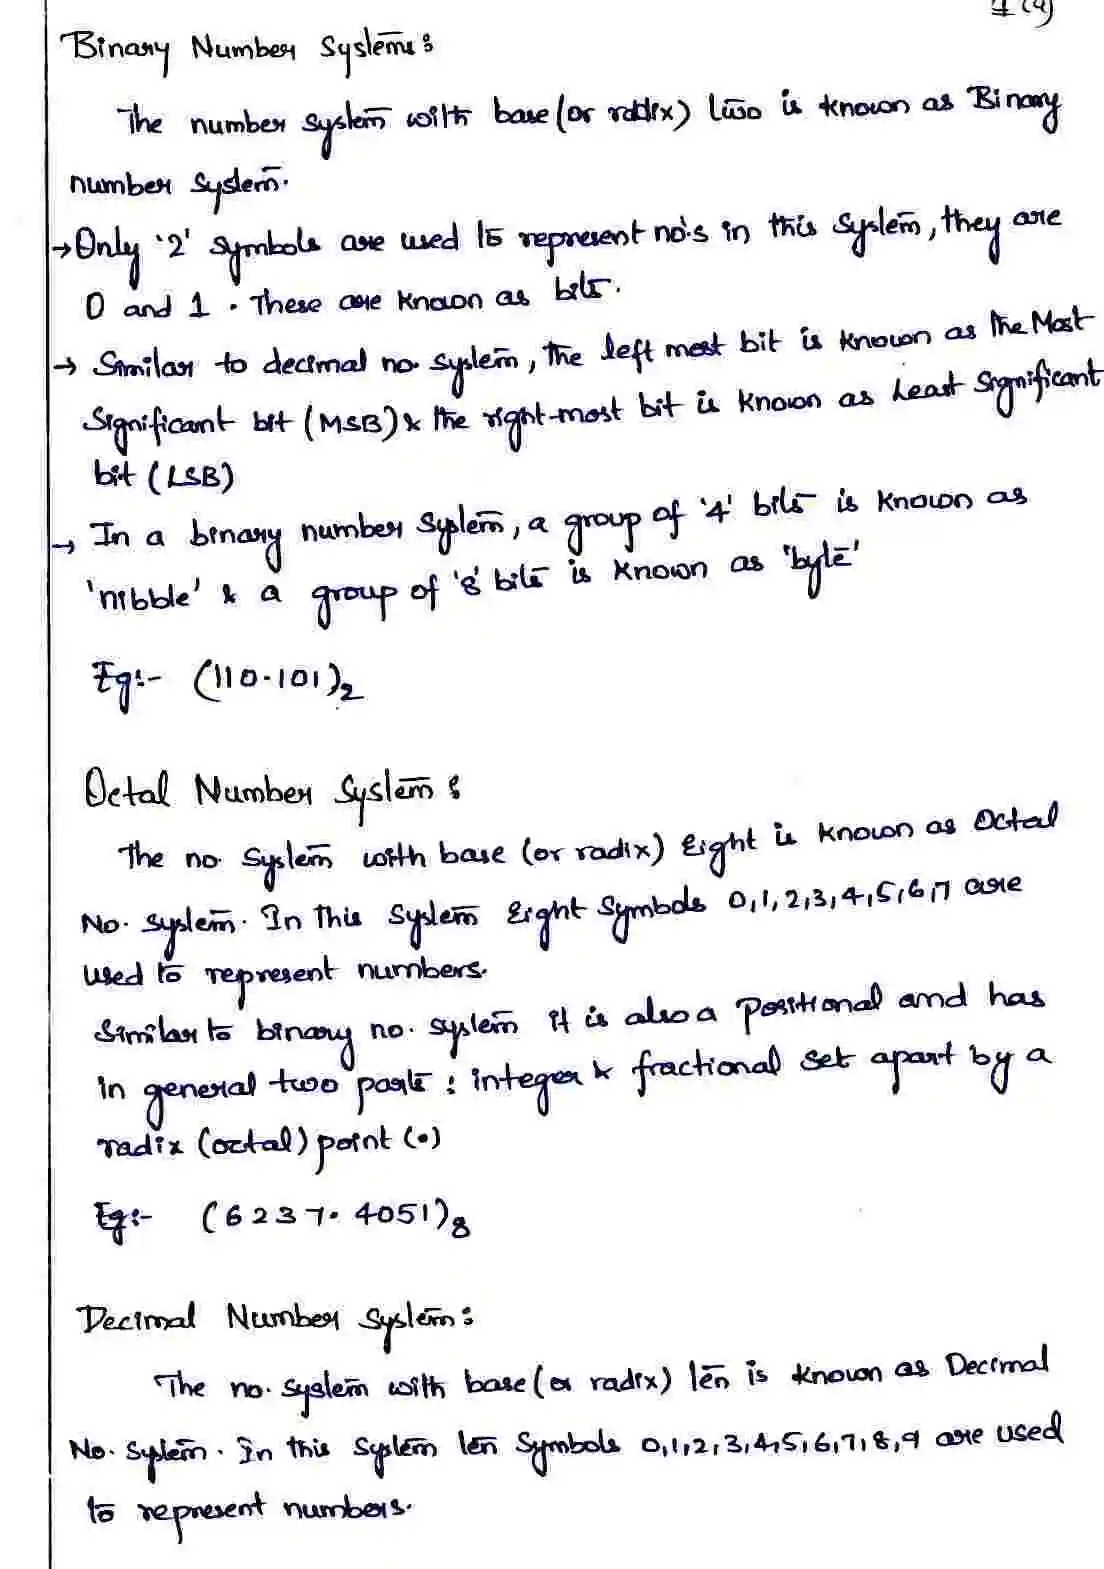 Binary Number System:
The number system with base (or radix) two is known as Binary
number system.
→ Only '2' symbols are used to represent no's in this system, they are
0 and 1. These are known as bits.
→ Similar to decimal no. system, the left most bit is known as the Most
Significant bit (MSB) & the right-most bit is known as Least Significant
bit (LSB)
→ In a binary number system, a group of '4' bits is known as
'nibble' & a group of '8' bits is known as 'byte'
Eg:- (110.101)₂
Octal Number System:
The no. system with base (or radix) Eight is known as Octal
No. system. In this system Eight symbols 0,1,2,3,4,5,6,7 are
used to represent numbers.
Similar to binary no. system it is also a positional and has
in general two parts: integer & fractional set apart by a
radix (octal) point (.)
Eg:- (6237.4051)₈
Decimal Number System:
The no. system with base (or radix) ten is known as Decimal
No. system. In this system ten symbols 0,1,2,3,4,5,6,7,8,9 are used
to represent numbers.